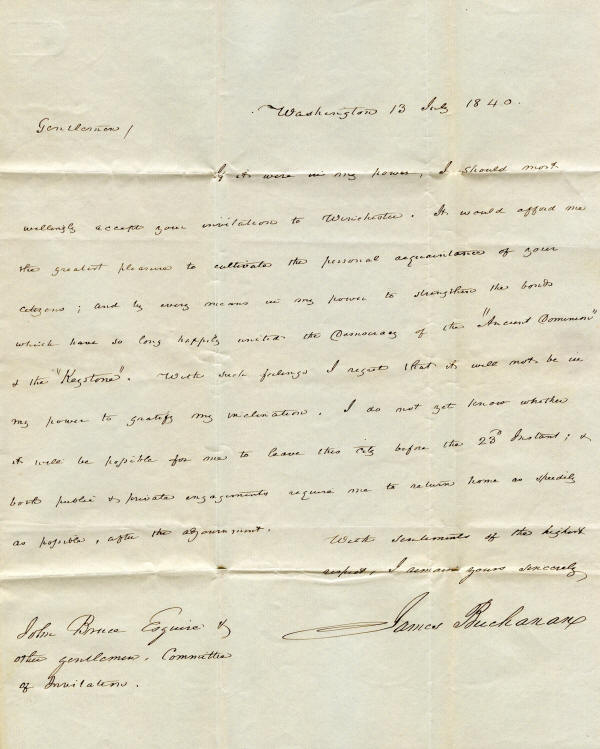 Washington 13 July 1840.
Gentlemen/
If it were in my power, I should most
willingly accept your invitation to Winchester. It would afford me
the greatest pleasure to cultivate the personal acquaintance of your
citizens; and by every means in my power to strengthen the bonds
which have so long happily united the Democracy of the "Ancient Dominion"
& the "Keystone". With such feelings I regret that it will not be in
my power to gratify my inclination. I do not yet know whether
it will be possible for me to leave this city before the 23d Instant; &
both public & private engagements require me to return home as speedily
as possible, after the adjournment.
With sentiments of the highest
respect, I remain yours sincerely
James Buchanan
John Bruce Esquire &
other gentlemen. Committee
of Invitation.